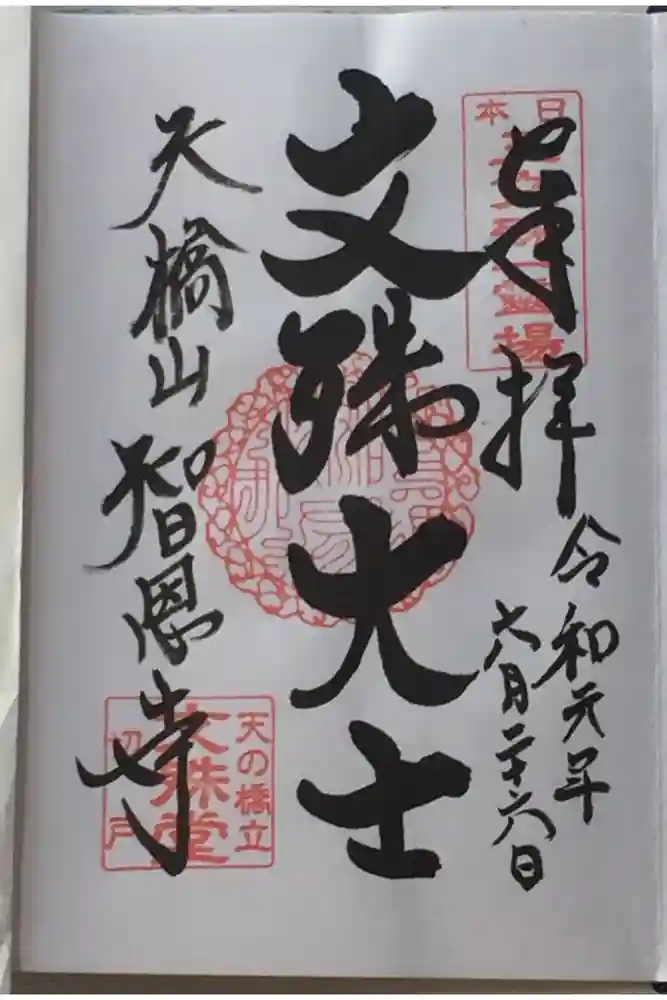 奉拝
令和元年
六月二十六日
日本
霊場
文殊大士
天橋山智恩寺
天の橋立
文殊堂
切戸